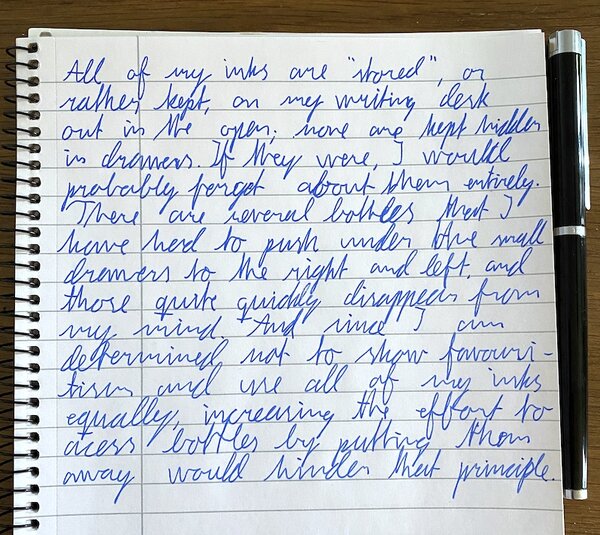 All of my inks are "stored", or
rather kept, on my writing desk
out in the open; none are kept hidden
in drawers. If they were, I would
probably forget about them entirely.
There are several bottles that I
have had to push under the small
drawers to the right and left, and
those quite quickly disappear from
my mind. And since I am
determined not to show favouri-
tism and use all of my inks
equally, increasing the effort to
acess bottles by putting them
away would hinder that principle.